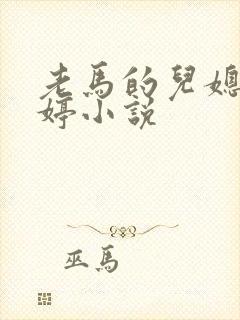 老馬的兒媳
婷小說
巫馬